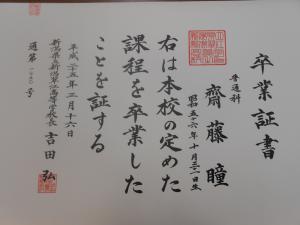 卒業証書
普通科
齋藤瞳
昭和五十六年十月
右は本校の定めた
課程を卒業した
ことを証する
平成二十五年三月十六日
新潟県立新潟翠江高等学校長 吉田弘
通第 号